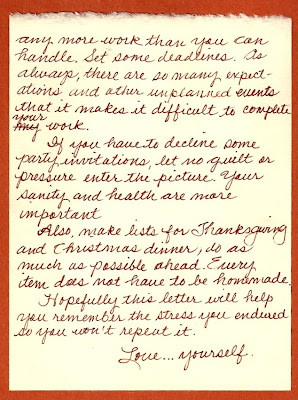 any more work than you can
handle. Set some deadlines. As
always, there are so many expect-
ations and other unplanned events
that it makes it difficult to complete
your
my work.
If you have to decline some
party invitations, let no guilt or
pressure enter the picture. Your
sanity and health are more
important
Also, make lists for Thanksgiving
and Christmas dinner, do as
much as possible ahead. Every
item does not have to be homemade.
Hopefully this letter will help
you remember the stress you endured
so you won't repeat it.
Love... yourself.